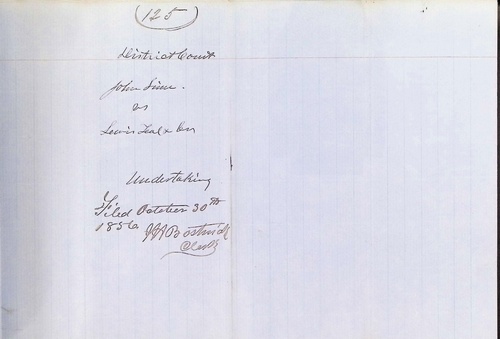 125
District Court
John Sinn.
vs
Lewis Teal &
Undertaking
Filed October 30th
1856 Bostwick
Clerk